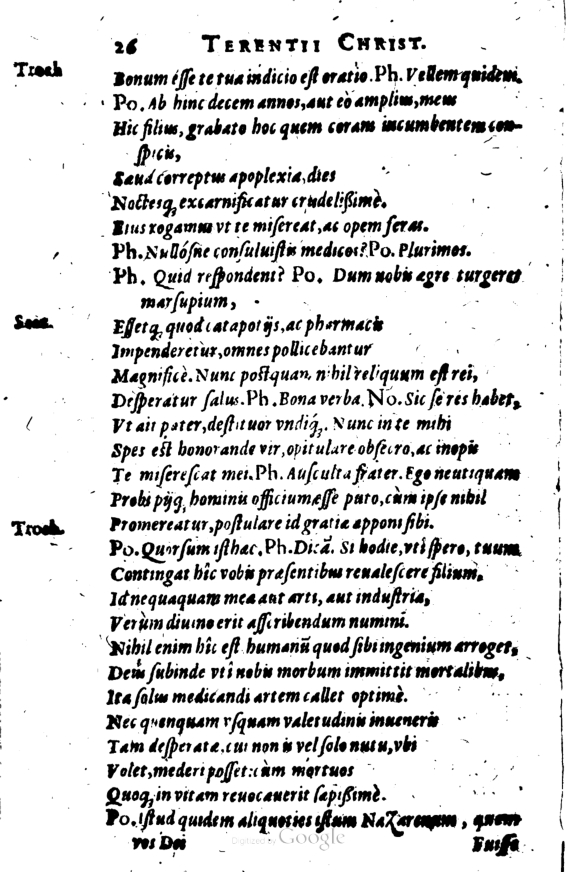 26 TERENTII CHRIST.
Troch
Bonum éſſe te tua indicio eſt oratio. Ph. Vellem quidem.
Po. Ab hinc decem annos, aut eò amplius, meus
Hic filius, grabato hoc quem coram incumbentem con-
ſpicis,
Sæua correptus apoplexia, dies
Noctesq́, excarnificatur crudelißimè.
Eius rogamus vt te miſereat, ac opem feras.
Ph. Nullóſne conſuluiſtis medicos? Po. Plurimos.
Ph. Quid reſpondent? Po. Dum nobis ægre turgeret
marſupium,
Senar.
Eſſetq́, quod catapotijs, ac pharmacis
Impenderetur, omnes pollicebantur
Magnificè. Nunc poſtquam nihil reliquum eſt rei,
Deſperatur ſalus. Ph. Bona verba. No. Sic ſe res habet,
Vt ait pater, deſtituor vndiq́;. Nunc in te mihi
Spes eſt honorande vir, opitulare obſecro, ac inopis
Te miſereſcat mei. Ph. Auſculta frater. Ego neutiquam
Probi pijq́, hominis officium eſſe puto, cùm ipſe nihil
Promereatur, poſtulare id gratiæ apponi ſibi.
Troch.
Po. Quorſum iſthæc. Ph. Dicã. Si hodie, vti ſpero, tuum
Contingat hîc vobis præſentibus reualeſcere filium,
Id nequaquam meæ aut arti, aut induſtriæ,
Verùm diuino erit aſſcribendum numini.
Nihil enim hîc eſt humanũ quod ſibi ingenium arroget,
Deus ſubinde vti nobis morbum immittit mortalibus,
Ita ſolus medicandi artem callet optimè.
Nec quenquam vſquam valetudinis inueneris
Tam deſperatæ, cui non is vel ſolo nutu, vbi
Volet, mederi poſſet: cùm mortuos
Quoq́, in vitam reuocauerit ſæpißimè.
Po. Iſtud quidem aliquoties iſtum NaZarenum, quem
vos Dei
Fuiſſe
Digitized by Google